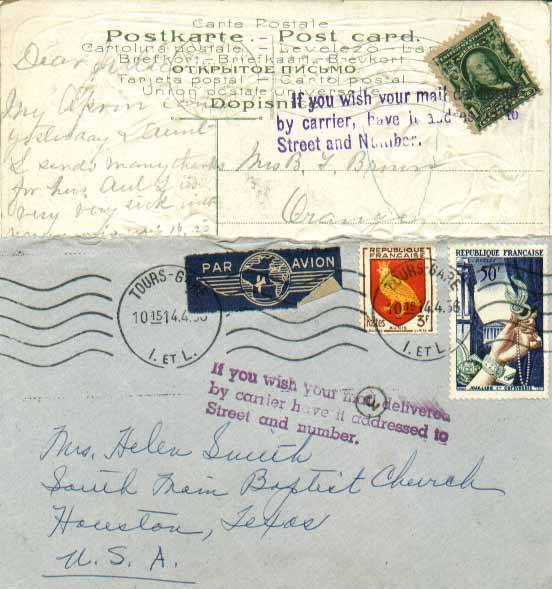 Carte Postale
Postkarte - Post card.
Cartolina postale - Levelező-Lap
Brefkort - Briefkaart, Brevkort
ОТКРЫТОЕ ПИСЬМО
Tarjeta postal Carto postal
Union postale universelle
Dopisnice
If you wish your mail
by carrier, have it to
Street and Number.
Dear
My
yesterday & Aunt
S sends many thanks
for hers
very very sick
Mrs B. F. Brown
Orange
PAR AVION
REPUBLIQUE
FRANÇAISE
Postes 3F
AUNIS
REPUBLIQUE FRANÇAISE
50F
TOURS-GARE
1015 14.4.56
I. ET L.
TOURS-GARE
1015 14.4.56
I. ET L.
If you wish your mail delivered
by carrier have it addressed to
Street and number.
Mrs. Helen Smith
South Main Baptist Church
Houston, Texas
U.S.A.